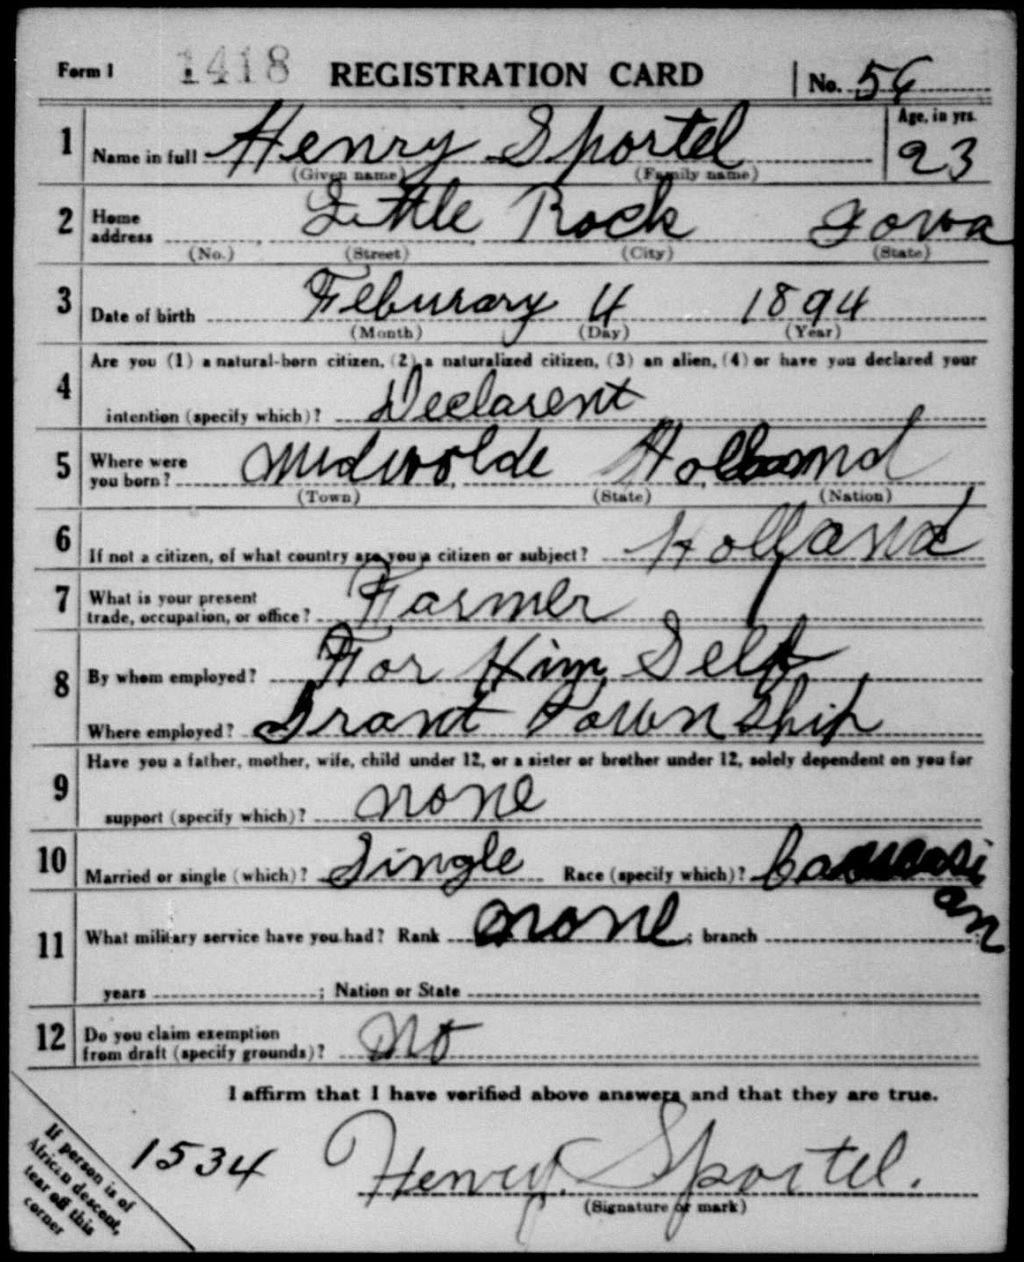 Form 1 1418 REGISTRATION CARD No. 56
1 Name in full Henry Sportel Age, in yrs. 23
(Given name) (Family name)
2 Home address Little Rock Iowa
(No.) (Street) (City) (State)
3 Date of birth Feburary 4 1894
(Month) (Day) (Year)
Are you (1) a natural-born citizen, (2) a naturalized citizen, (3) an alien, (4) or have you declared your
4 intention (specify which)? Declarent
5 Where were you born? Midwolde Holland
(Town) (State) (Nation)
6 If not a citizen, of what country are you a citizen or subject? Holland
7 What is your present
trade, occupation, or office? Farmer
8 By whom employed? For Him Self
Where employed? Grant Township
Have you a father, mother, wife, child under 12, or a sister or brother under 12, solely dependent on you for
9 support (specify which)? none
10 Married or single (which)? Single Race (specify which)? Caucasian
11 What military service have you had? Rank none ; branch
years ; Nation or State
12 Do you claim exemption
from draft (specify grounds)? No
I affirm that I have verified above answers and that they are true.
1534 Henry Sportel.
(Signature or mark)
If person is of
African descent,
tear off this
corner